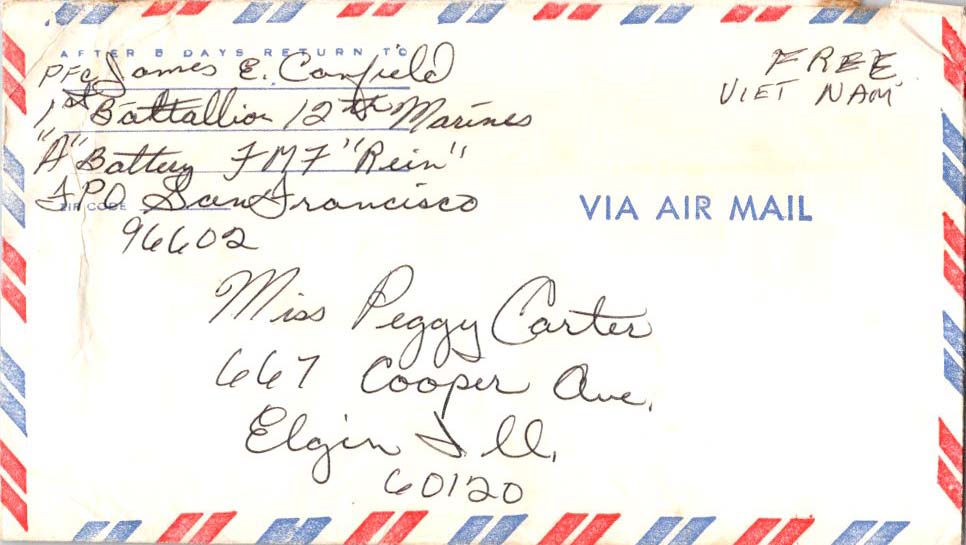 AFTER 5 DAYS RETURN TO
PFC James E. Canfield
1st Battallion 12th Marines
"A" Battery FMF "Rein"
FPO San Francisco
ZIP CODE
96602
FREE
VIET NAM
VIA AIR MAIL
Miss Peggy Carter
667 Cooper Ave.
Elgin Ill.
60120